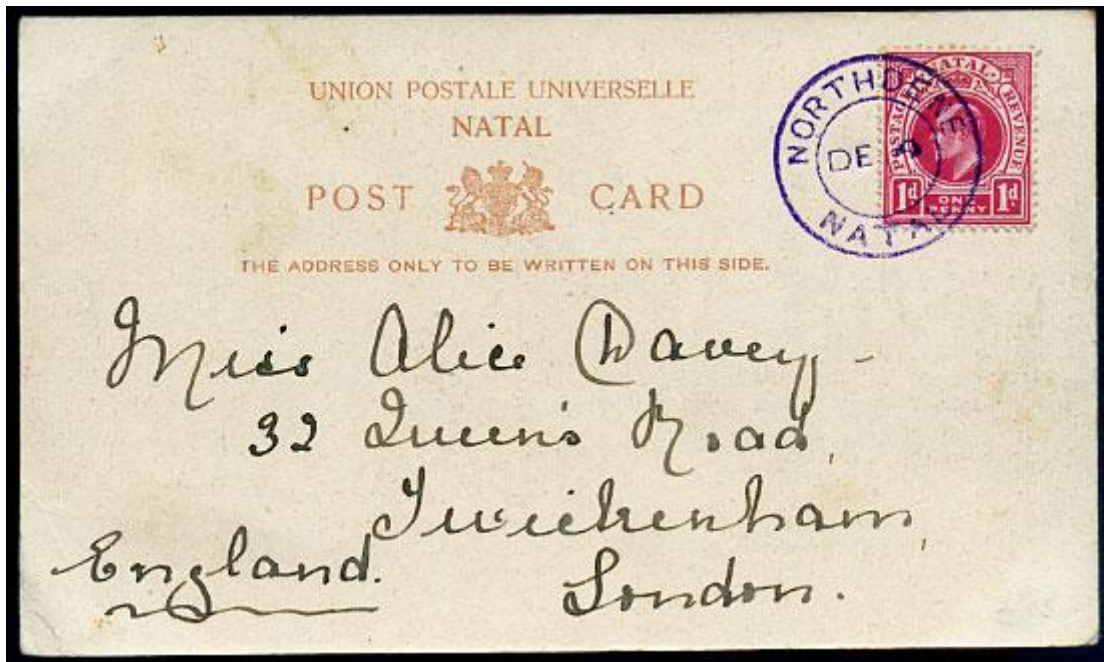 UNION POSTALE UNIVERSELLE
NATAL
POST CARD
THE ADDRESS ONLY TO BE WRITTEN ON THIS SIDE.
NORTHDENE
DE
NATAL
NATAL
POSTAGE REVENUE
1d ONE PENNY 1d
Miss Alice Davey -
32 Queen's Road,
Twickenham,
London.
England.